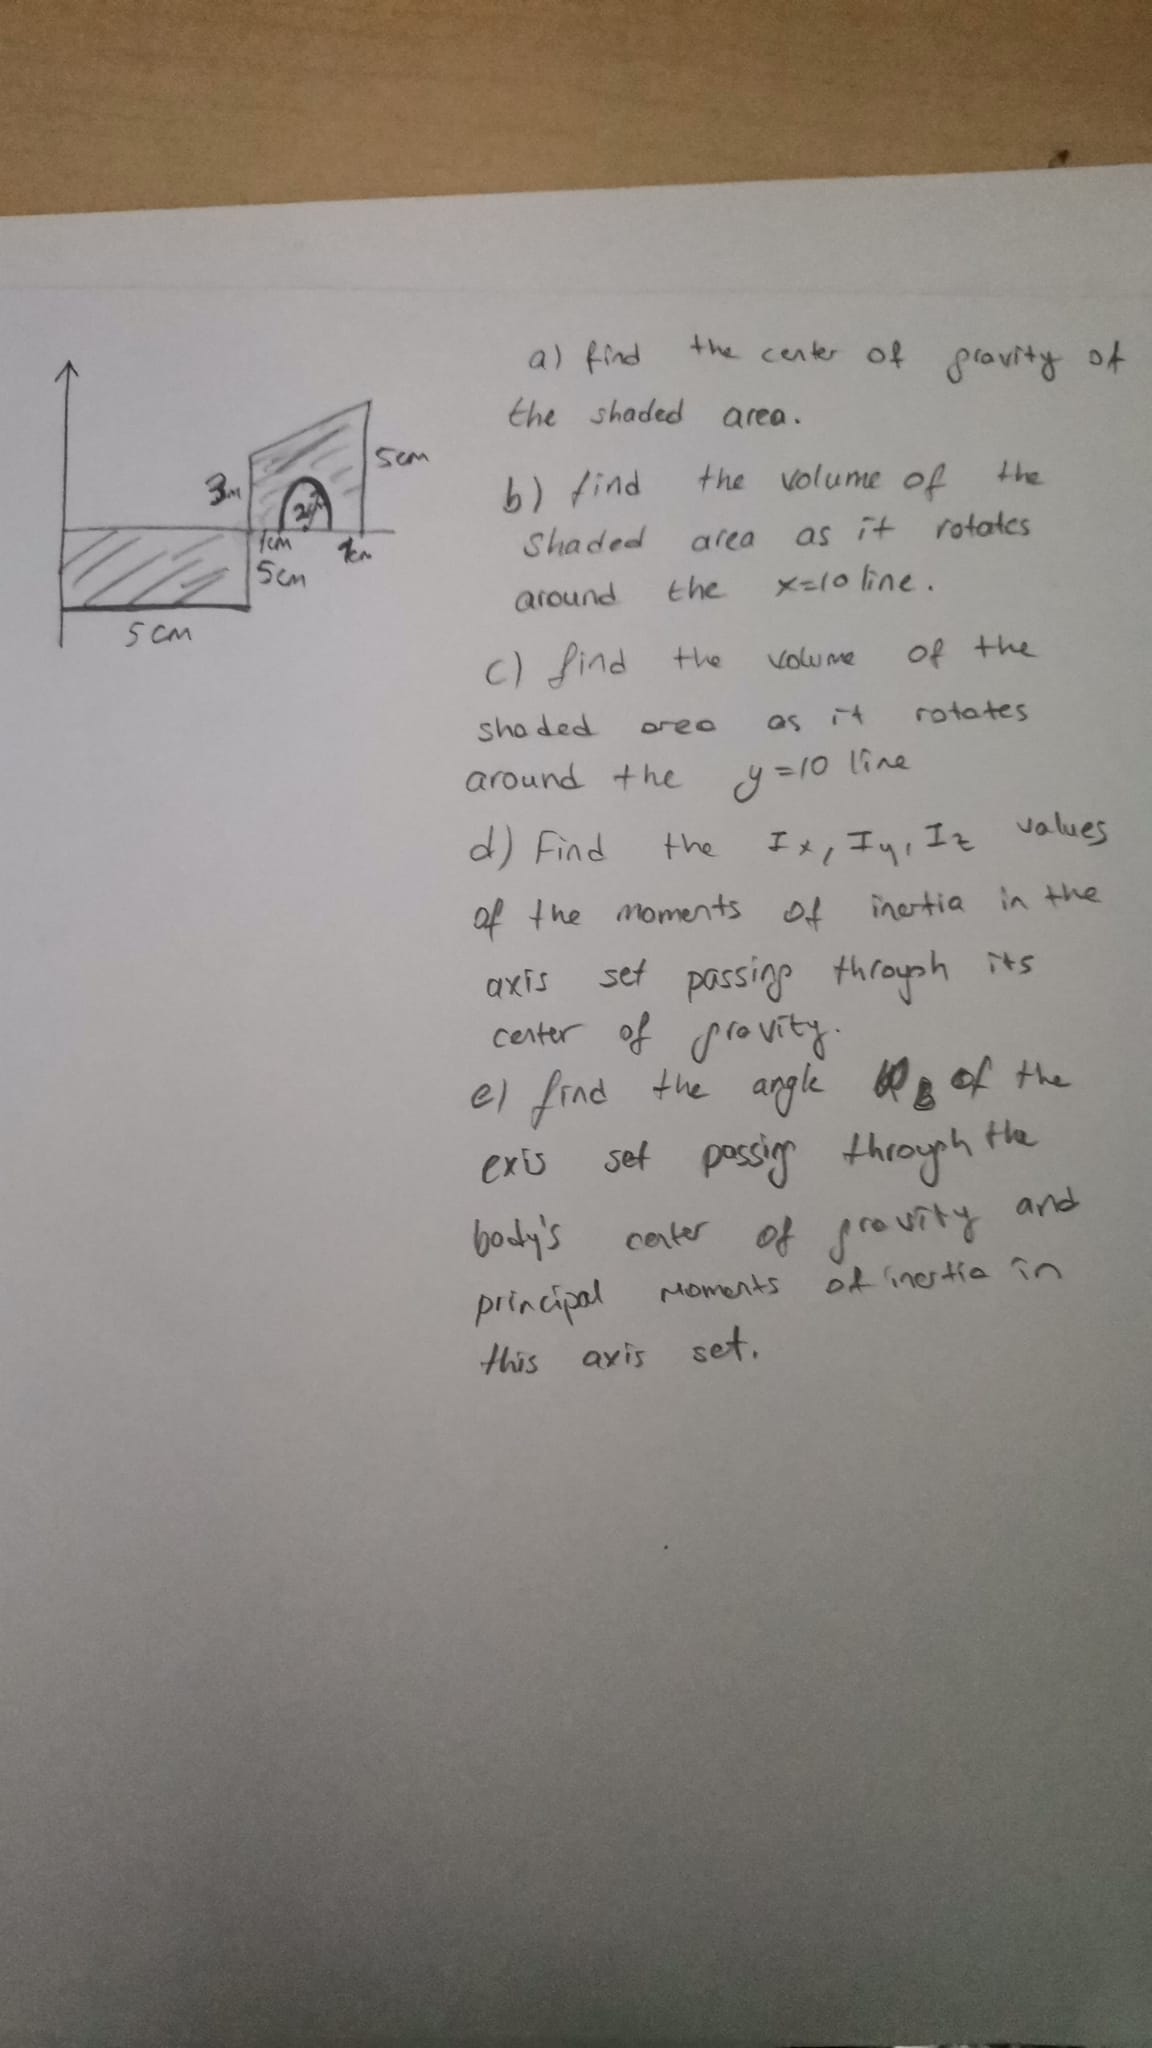 a) find the center of gravity of
the shaded area.
b) find the volume of the
shaded area as it rotates
around the x=10 line.
c) find the volume of the
shaded area as it rotates
around the y=10 line
d) Find the Ix, Iy, Iz values
of the moments of inertia in the
axis set passing through its
center of gravity.
e) find the angle of the
exis set passing through the
body's center of gravity and
principal moments of inertia in
this axis set.
5cm
1cm
5cm
5cm